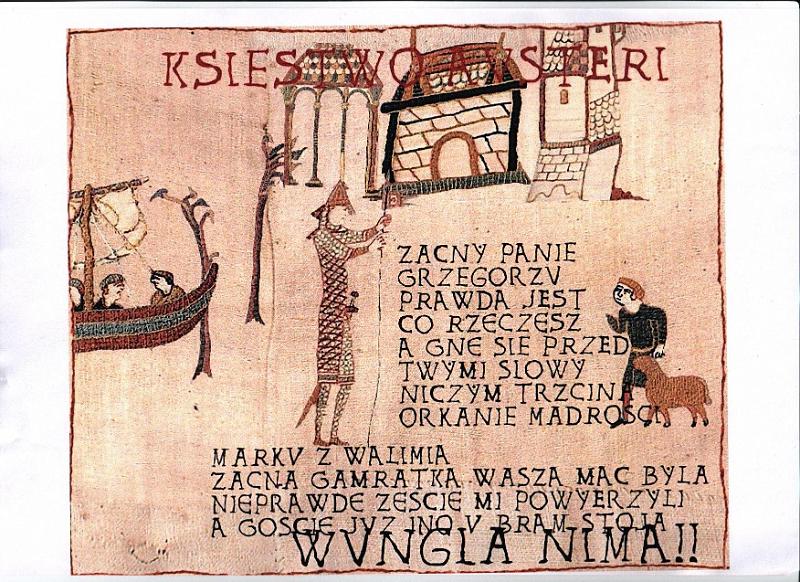 KSIESTWO AVSTERI
ZACNY PANIE
GRZEGORZV
PRAWDA JEST
CO RZECZESZ
A GNE SIE PRZED
TWYMI SLOWY
NICZYM TRZCINA
ORKANIE MADROSCI
MARKV Z WALIMIA
ZACNA GAMRATKA WASZA MAC BYLA
NIEPRAWDE ZESCIE MI POWYERZYLI
A GOSCIE JVZ INO V BRAM STOJA
WVNGLA NIMA!!